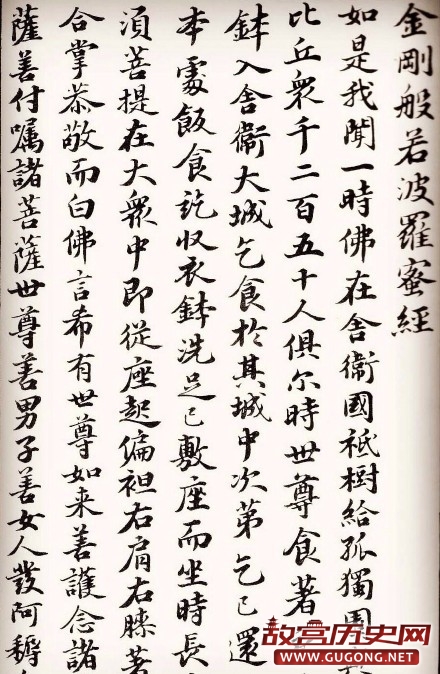 金剛般若波羅蜜經
如是我聞一時佛在舍衛國祇樹給孤獨園
比丘衆千二百五十人俱尔時世尊食著
鉢入舍衛大城乞食於其城中次第乞已還
本處飯食訖収衣鉢洗足已敷座而坐時長
須菩提在大衆中即從座起偏袒右肩右膝著
合掌恭敬而白佛言希有世尊如来善護念諸
薩善付囑諸菩薩世尊善男子善女人發阿耨
故宫历史网
WWW.GUGONG.NET